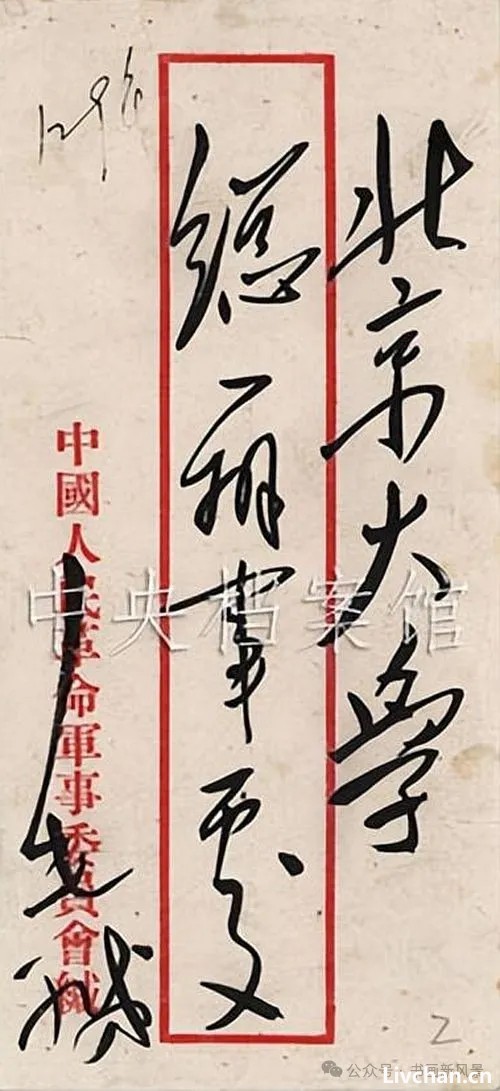 北京大學
總辦事處
中國人民革命軍事委員會緘
毛緘
中央档案馆
2
公众号
Livchan.cn